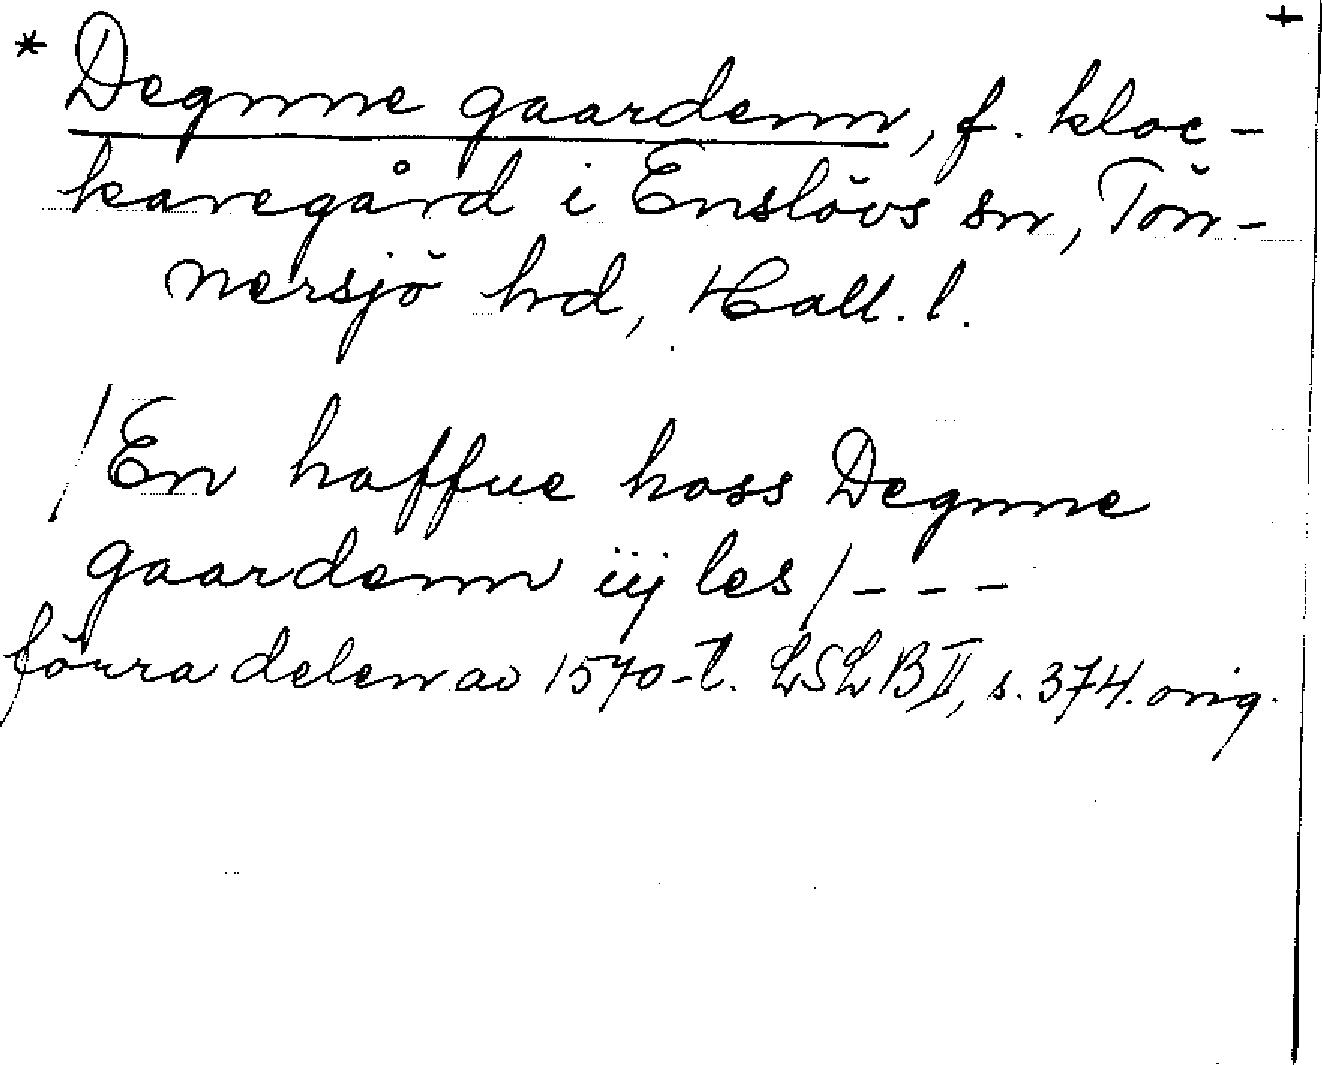 * Degnne gaardenn, f. kloc- +
kavegård i Enslövs sn, Tön-
nersjö hd, Hall. l.
/En haffue hoss Degnne
gaardenn iij les/ - - -
förra delen av 1570-t. LSLB II, s. 374. orig.